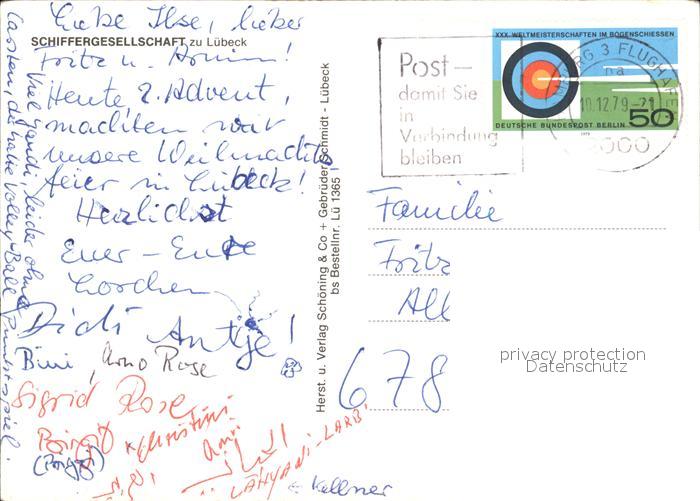 Liebe Ilse, lieber
SCHIFFERGESELLSCHAFT zu Lübeck
Fritz u. Armin!
Heute 2. Advent,
machten wir
unsere Weihnachts
feier in Lübeck!
Herzlichst
Euer - Eure
Lorchen
Didi Antje!
Bini, Arno Rose
Sigrid Rose
Birgit + Christini
(Poiggi)
LAHYANI-LARBI
Kellner
leider ohne
Carsten, der hatte Volley-Ball
Punktspiel.
Herst. u. Verlag Schöning & Co + Gebrüder Schmidt - Lübeck
bs Bestellnr. Lü 1365
XXX. WELTMEISTERSCHAFTEN IM BOGENSCHIESSEN
DEUTSCHE BUNDESPOST BERLIN 50
1979
Post —
damit Sie
in
Verbindung
bleiben
3 FLUGHAFEN
na
10.12.79-21
2000
Familie
Fritz
All
678
privacy protection
Datenschutz